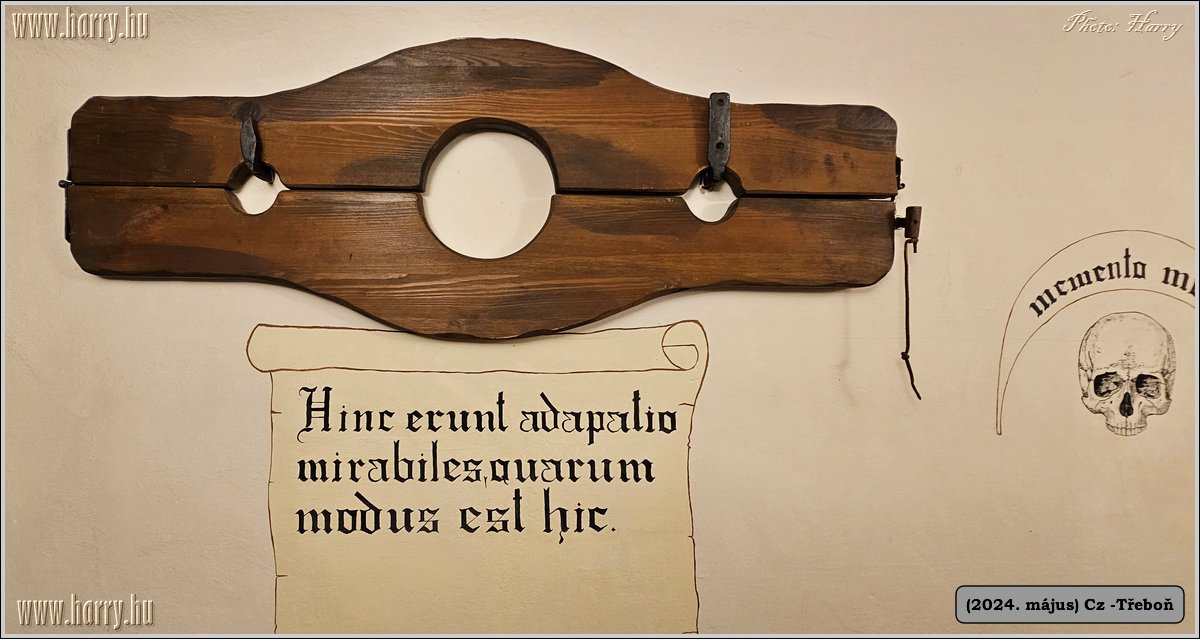 www.harry.hu
Photo: Harry
memento m
Hinc erunt adapatio
mirabiles,quarum
modus est hic.
www.harry.hu
(2024. május) Cz -Třeboň